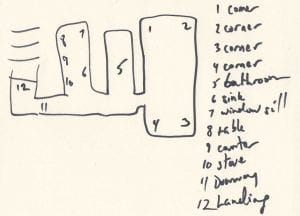 8 7
9
10 6
5
1 2
4 3
12
11
1 corner
2 corner
3 corner
4 corner
5 bathroom
6 sink
7 window sill
8 table
9 counter
10 stove
11 Doorway
12 Landing